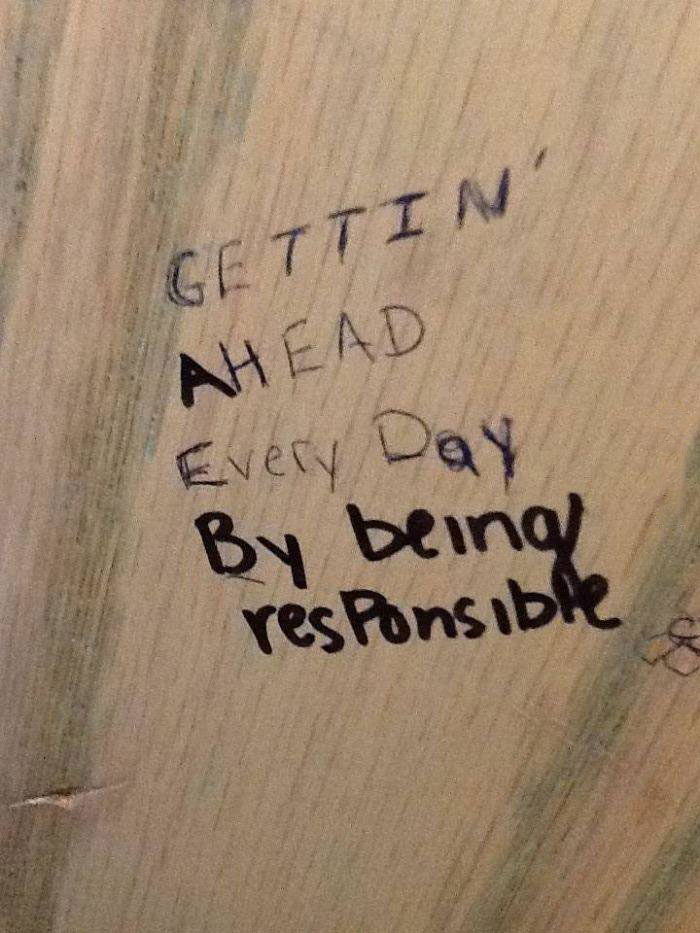 GETTIN'
AHEAD
Every Day
By being
responsible